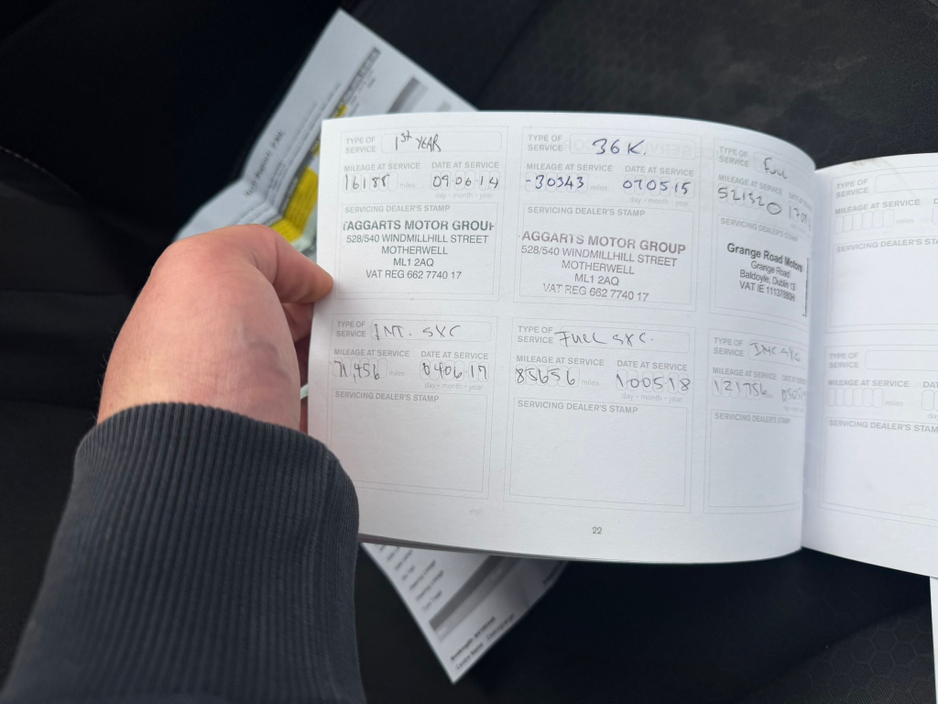 TYPE OF SERVICE 1ST YEAR
MILEAGE AT SERVICE DATE AT SERVICE
16188 miles 09 06 14
day - month - year
SERVICING DEALER'S STAMP
TAGGARTS MOTOR GROUP
528/540 WINDMILLHILL STREET
MOTHERWELL
ML1 2AQ
VAT REG 662 7740 17
TYPE OF SERVICE 36K.
MILEAGE AT SERVICE DATE AT SERVICE
-30343 miles 07 05 15
day - month - year
SERVICING DEALER'S STAMP
AGGARTS MOTOR GROUP
528/540 WINDMILLHILL STREET
MOTHERWELL
ML1 2AQ
VAT REG 662 7740 17
TYPE OF SERVICE Full
MILEAGE AT SERVICE
521320
SERVICING DEALER'S STAMP
Grange Road Motors
Grange Road
Baldoyle, Dublin 13
VAT IE
TYPE OF SERVICE INT. SVC
MILEAGE AT SERVICE DATE AT SERVICE
71,456 miles 04 06 17
day - month - year
SERVICING DEALER'S STAMP
TYPE OF SERVICE Full SVC.
MILEAGE AT SERVICE DATE AT SERVICE
85656 miles 10 05 18
day - month - year
SERVICING DEALER'S STAMP
TYPE OF SERVICE SVC
MILEAGE AT SERVICE
121756
SERVICING DEALER'S STAMP
22
TYPE OF SERVICE
MILEAGE AT SERVICE
miles
SERVICING DEALER'S STAM
TYPE OF SERVICE
MILEAGE AT SERVICE
miles
SERVICING DEALER'S STAM